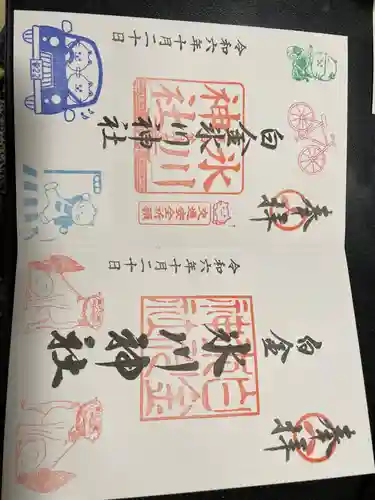 奉拝
白金氷川神社
氷川神社
交通安全祈願
令和六年十月二十日
奉拝
白金
氷川神社
白金氷川神社
令和六年十月二十日